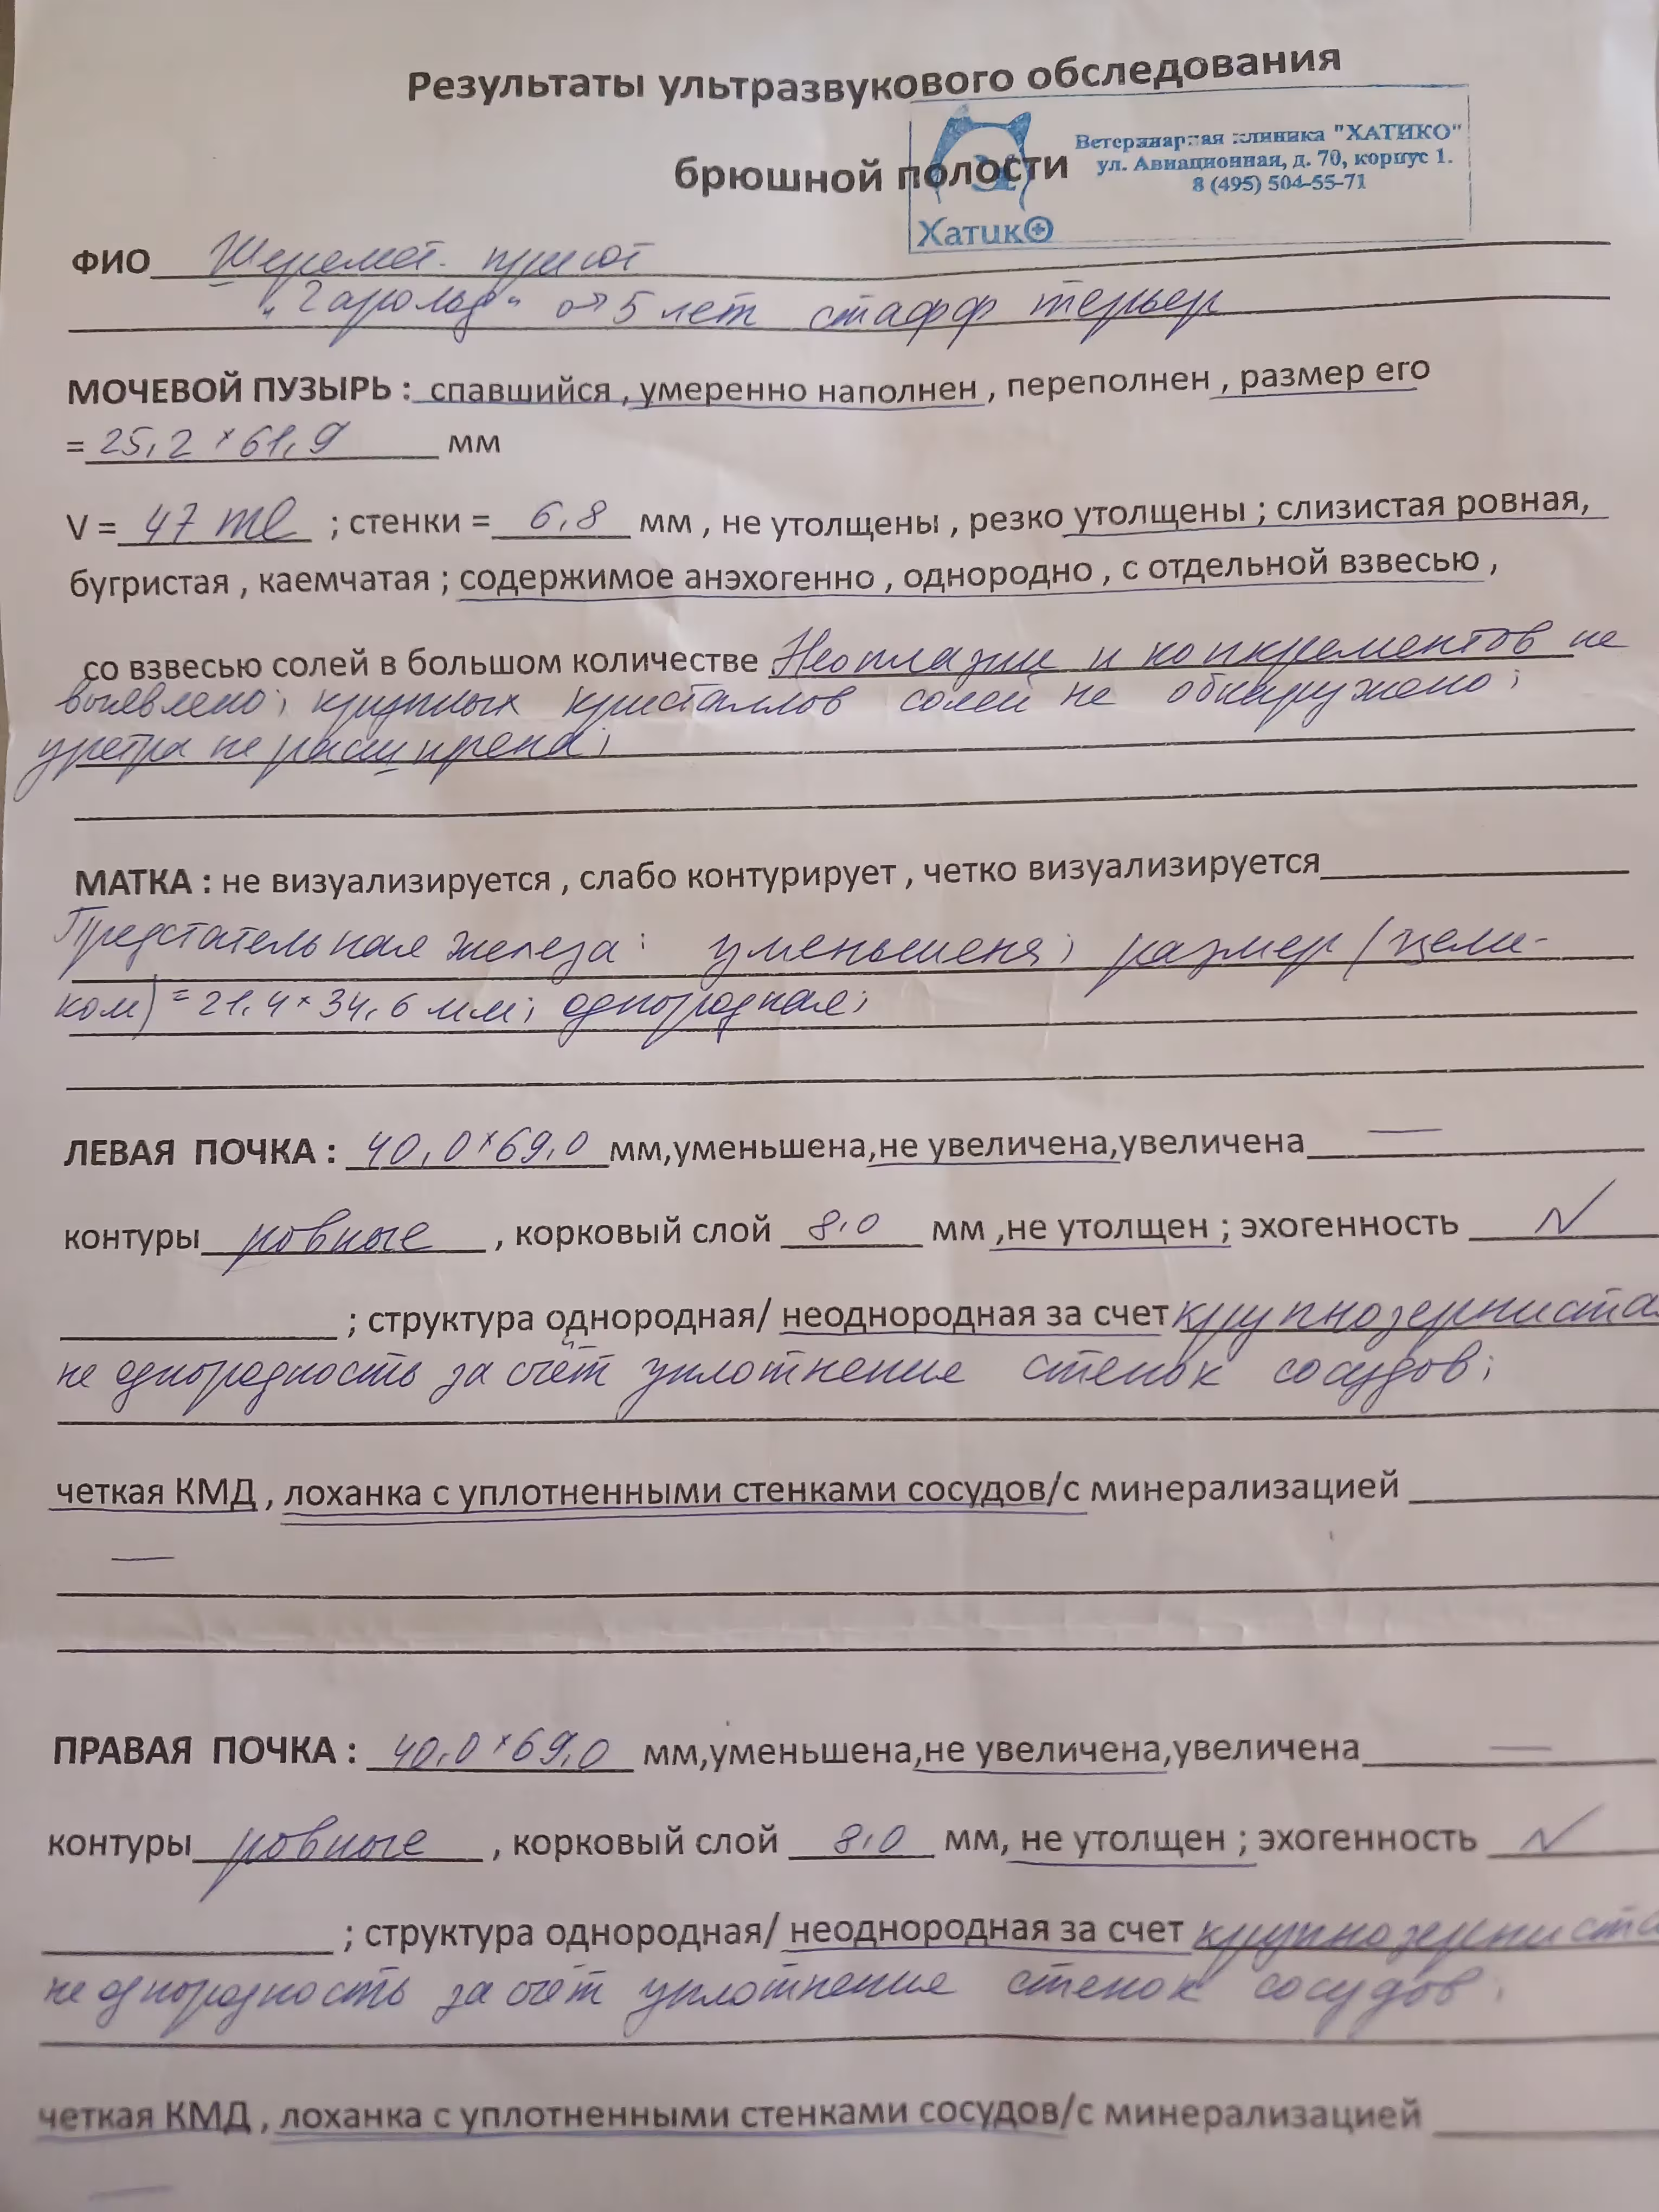 Результаты ультразвукового обследования
брюшной полости
Ветеринарная клиника "ХАТИКО"
ул. Авиационная, д. 70, корпус 1.
8 (495) 504-55-71
Хатико
ФИО Шеремет. приют
"Гарольд" 5 лет стафф терьер
МОЧЕВОЙ ПУЗЫРЬ : спавшийся , умеренно наполнен , переполнен , размер его
= 25,2 × 61,9 мм
V = 47 ml ; стенки = 6,8 мм , не утолщены , резко утолщены ; слизистая ровная,
бугристая , каемчатая ; содержимое анэхогенно , однородно , с отдельной взвесью ,
со взвесью солей в большом количестве Неоплазии и конкрементов не
выявлено; крупных кристаллов солей не обнаружено;
уретра не расширена;
МАТКА : не визуализируется , слабо контурирует , четко визуализируется
Предстательная железа: уменьшена; размер (цели-
ком) = 21,4 × 34,6 мм; однородная;
ЛЕВАЯ ПОЧКА : 40,0 × 69,0 мм,уменьшена,не увеличена,увеличена —
контуры ровные , корковый слой 8,0 мм ,не утолщен ; эхогенность N
; структура однородная/ неоднородная за счет крупнозерниста
неоднородность за счёт уплотнение стенок сосудов;
четкая КМД , лоханка с уплотненными стенками сосудов/с минерализацией
—
ПРАВАЯ ПОЧКА : 40,0 × 69,0 мм,уменьшена,не увеличена,увеличена —
контуры ровные , корковый слой 8,0 мм, не утолщен ; эхогенность N
; структура однородная/ неоднородная за счет крупнозерниста
неоднородность за счёт уплотнение стенок сосудов;
четкая КМД , лоханка с уплотненными стенками сосудов/с минерализацией
—